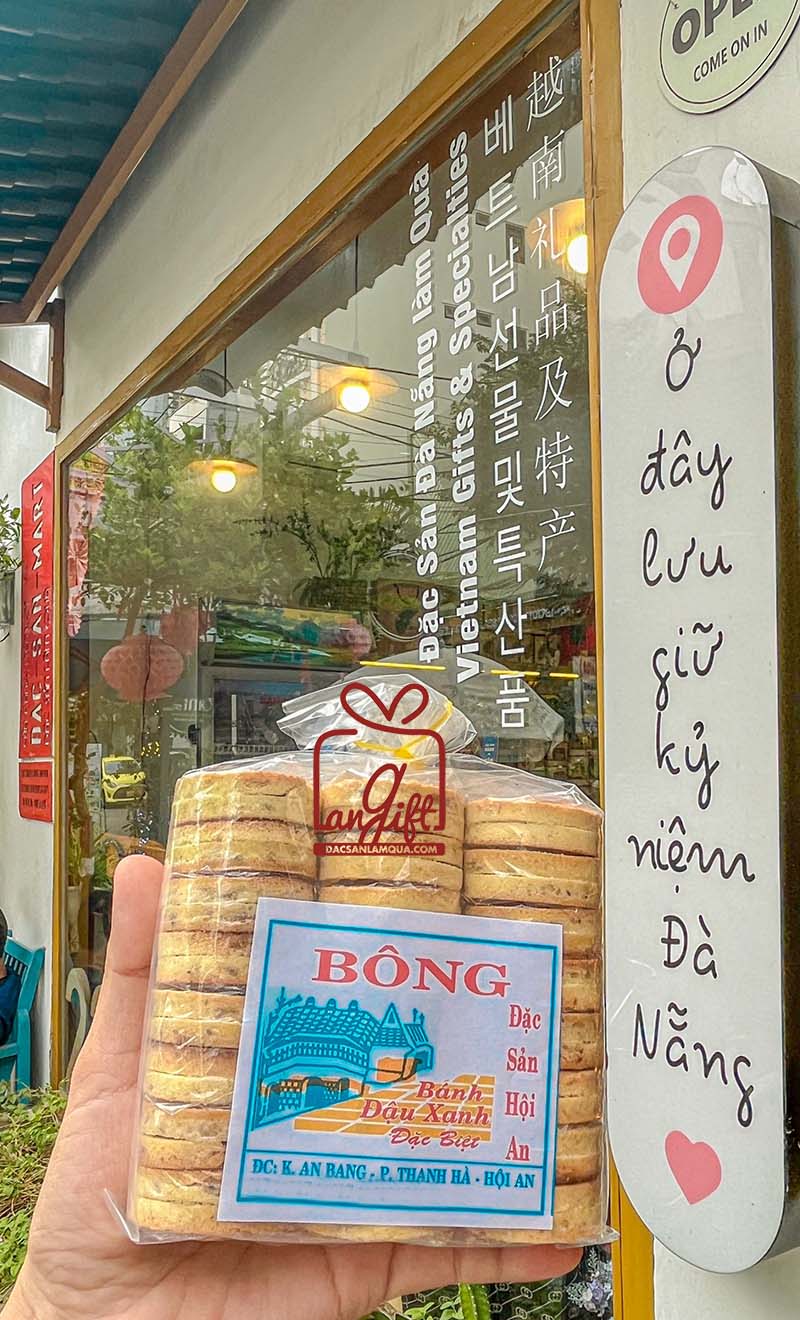 OPEN
COME ON IN
越南礼品及特产
베트남 선물 및 특산품
Vietnam Gifts & Specialties
Đặc Sản Đà Nẵng làm Quà
Ở
đây
lưu
giữ
kỷ
niệm
Đà
Nẵng
DAC-SAN-MART
an gift
DACSANLAMQUA.COM
BÔNG
Đặc
Sản
Hội
An
Bánh
Đậu Xanh
Đặc Biệt
ĐC: K. AN BANG - P. THANH HÀ - HỘI AN